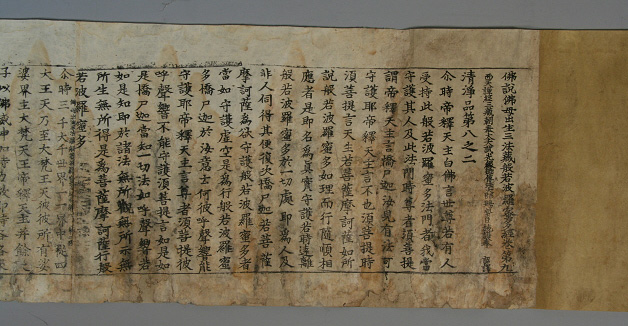 佛說佛母出生三法藏般若波羅蜜多經卷第九
西天譯經三藏朝奉大夫試光祿卿
清淨品第八之二
尒時帝釋天主白佛言世尊若有人
受持此般若波羅蜜多法門者我當
守護其人及此法門時尊者須菩提
謂帝釋天主言憍尸迦汝見有法可
守護耶帝釋天主言不也須菩提時
須菩提言天主若菩薩摩訶薩如所
說般若波羅蜜多如理而行隨順相
應者是即名為真實守護若時遠離
般若波羅蜜多於一切處即為人及
非人伺得其便復次憍尸迦若菩薩
摩訶薩為欲守護般若波羅蜜多者
當如守護虛空是為行般若波羅蜜
多憍尸迦於汝意云何彼呼聲響能
守護耶帝釋天主言尊者須菩提彼
呼聲響不能守護須菩提言如是如
是憍尸迦當知一切法如呼聲響若
如是知即於諸法無所觀無所示無
所生無所得是為菩薩摩訶薩行般
若波羅蜜多
尒時三千大千世界四
大王天乃至大梵天王彼彼所有娑
婆界主大梵天王帝釋天主并餘
子以佛威神